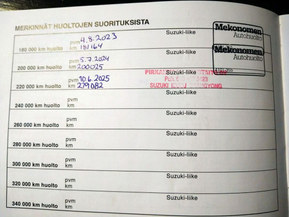 MERKINNÄT HUOLTOJEN SUORITUKSISTA
180 000 km huolto pvm 4.8.2023 km 181164 Suzuki-liike Mekonomen Autohuolto
200 000 km huolto pvm 5.7.2024 km 200025 Suzuki-liike Mekonomen Autohuolto
220 000 km huolto pvm 10.6.2025 km 219082 Suzuki-liike
240 000 km huolto pvm km Suzuki-liike
260 000 km huolto pvm km Suzuki-liike
280 000 km huolto pvm km Suzuki-liike
300 000 km huolto pvm km Suzuki-liike
320 000 km huolto pvm km Suzuki-liike
340 000 km huolto pvm km Suzuki-liike